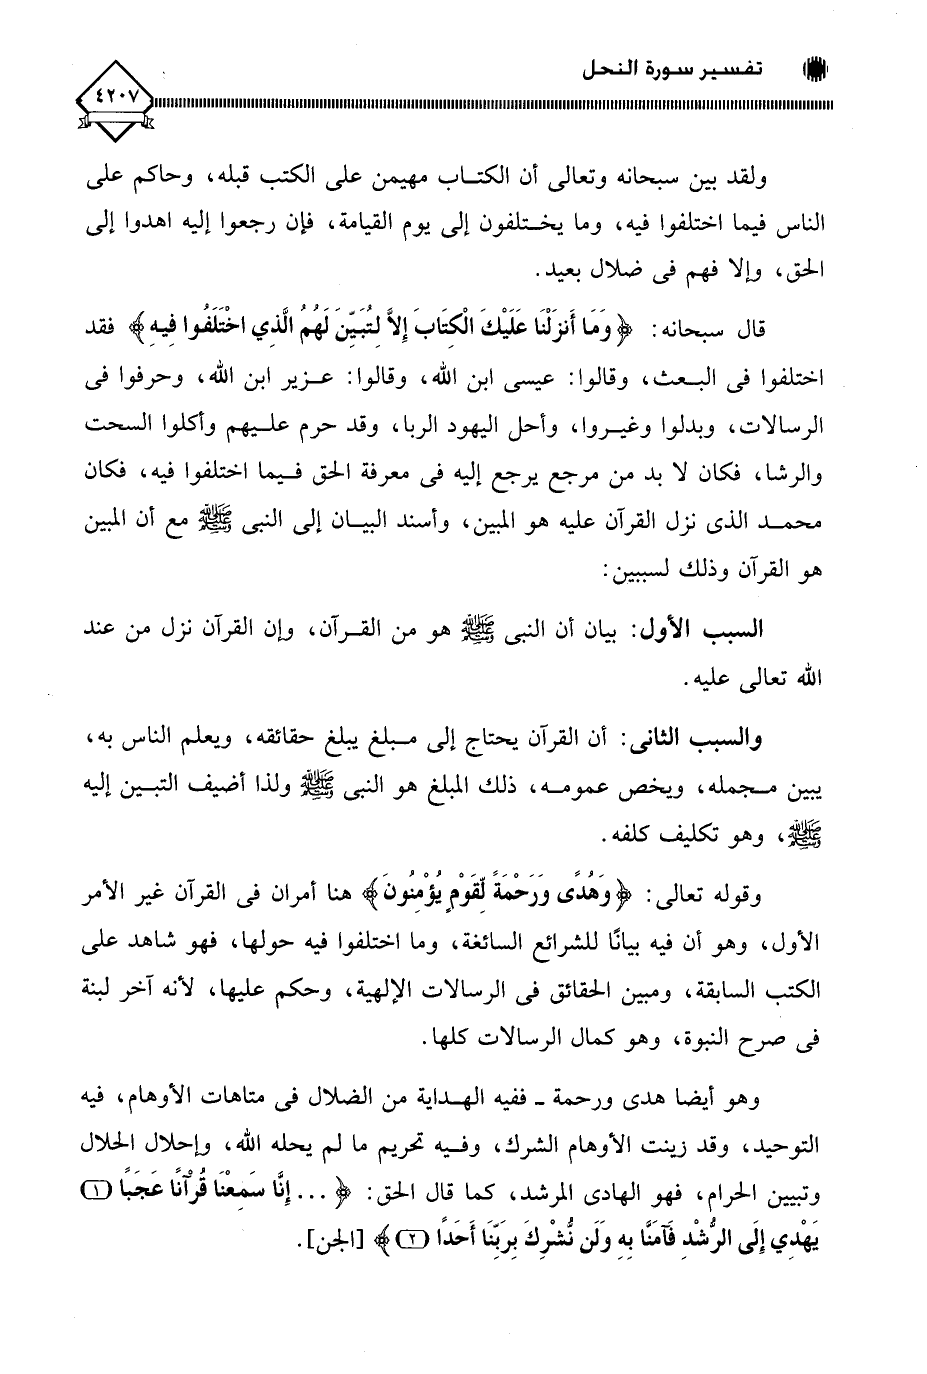 تفسير سورة النحل
٤٢٠٧
ولقد بين سبحانه وتعالى أن الكتـاب مهيمن على الكتب قبله، وحاكم على
الناس فيما اختلفوا فيه، وما يختلفون إلى يوم القيامة، فإن رجعوا إليه اهدوا إلى
الحق، وإلا فهم فى ضلال بعيد.
قال سبحانه: ﴿ وَمَا أَنزَلْنَا عَلَيْكَ الْكِتَابَ إِلاَّ لِتُبَيِّنَ لَهُمُ الَّذِي اخْتَلَفُوا فِيهِ ﴾ فقد
اختلفوا فى البـعث، وقالوا: عيسى ابن الله، وقالوا: عـزير ابن الله، وحرفوا فى
الرسالات، وبدلوا وغيـروا، وأحل اليهود الربا، وقد حرم علـيهم وأكلوا السحت
والرشا، فكان لا بد من مرجع يرجع إليه فى معرفة الحق فـيما اختلفوا فيه، فكان
محمـد الذى نزل القرآن عليه هو المبين، وأسند البيـان إلى النبى ﷺ مع أن المبين
هو القرآن وذلك لسببين:
السبب الأول: بيان أن النبى ﷺ هو من القـرآن، وإن القرآن نزل من عند
الله تعالى عليه.
والسبب الثانى: أن القرآن يحتاج إلى مـبلغ يبلغ حقائقه، ويعلم الناس به،
يبين مـجمله، ويخص عمومـه، ذلك المبلغ هو النبى ﷺ ولذا أضيف التبـين إليه
ﷺ، وهو تكليف كلفه.
وقوله تعالى: ﴿ وَهُدًى وَرَحْمَةً لِّقَوْمٍ يُؤْمِنُونَ ﴾ هنا أمران فى القرآن غير الأمر
الأول، وهو أن فيه بيانًا للشرائع السائغة، وما اختلفوا فيه حولها، فهو شاهد على
الكتب السابقة، ومبين الحقائق فى الرسالات الإلهية، وحكم عليها، لأنه آخر لبنة
فى صرح النبوة، وهو كمال الرسالات كلها.
وهو أيضا هدى ورحمة ـ ففيه الهـداية من الضلال فى متاهات الأوهام، فيه
التوحيد، وقد زينت الأوهام الشرك، وفـيه تحريم ما لم يحله الله، وإحلال الحلال
وتبيين الحرام، فهو الهادى المرشد، كما قال الحق: ﴿ ... إِنَّا سَمِعْنَا قُرْآنًا عَجَبًا (١)
يَهْدِي إِلَى الرُّشْدِ فَآمَنَّا بِهِ وَلَن نُّشْرِكَ بِرَبِّنَا أَحَدًا (٢) ﴾ [الجن].